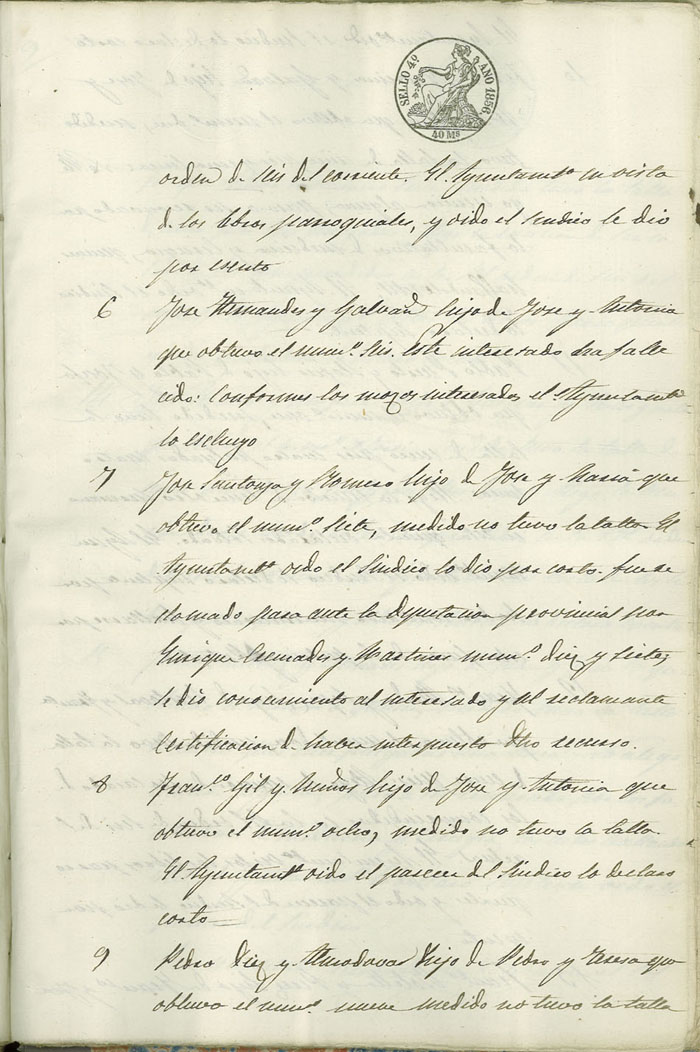 SELLO 4º AÑO 1856.
40 Ms
orden de seis del corriente. El Ayuntamtº en vista
de los libros parroquiales, y oido el sindico le dio
por esento
6 Jose Hernandes y Galvañ hijo de Jose y Antonia
que obtuvo el numº seis. Este interesado ha falle
cido: Conformes los mozos interesados el Ayuntamtº
lo escluyo
7 Jose Santonja y Romero hijo de Jose y Maria que
obtuvo el numº siete, medido no tuvo la talla El
Ayuntamtº oido el Sindico lo dio por corto. fue re
clamado para ante la diputacion provincial por
Enrique Cremades y Martines numº diez y siete,
se dio conocimiento al interesado y al reclamante
Certificacion de haber interpuesto dho recurso.
8 Franco Gil y Muños hijo de Jose y Antonia que
obtuvo el numº ocho, medido no tuvo la talla.
El Ayuntamtº oido el parecer del Sindico lo declaro
corto
9 Pedro Diez y Almodovar hijo de Pedro y Teresa que
obtuvo el numº nueve medido no tuvo la talla